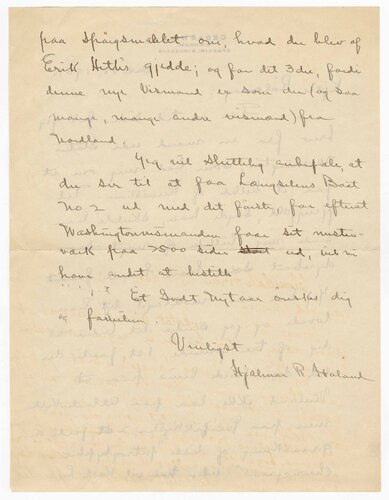 paa Spörgsmaalet om, hvad du blev af
Erik Hetlis gjedde; og for det 3die, fordi
denne nye Vismand er som du (og saa
mange, mange andre vismænd) fra
Nordland.
Jeg vil sluttelig anbefale, at
du ser til at faa Længselens Baat
No. 2 ud med det förste, for efterat
Washingtonvismanden faar sit mester-
værk paa 2500 sider ud, vil vi
have andet at bestille
Et Godt Nytaar önskes dig
& familien
Venligst
Hjalmar R. Holand